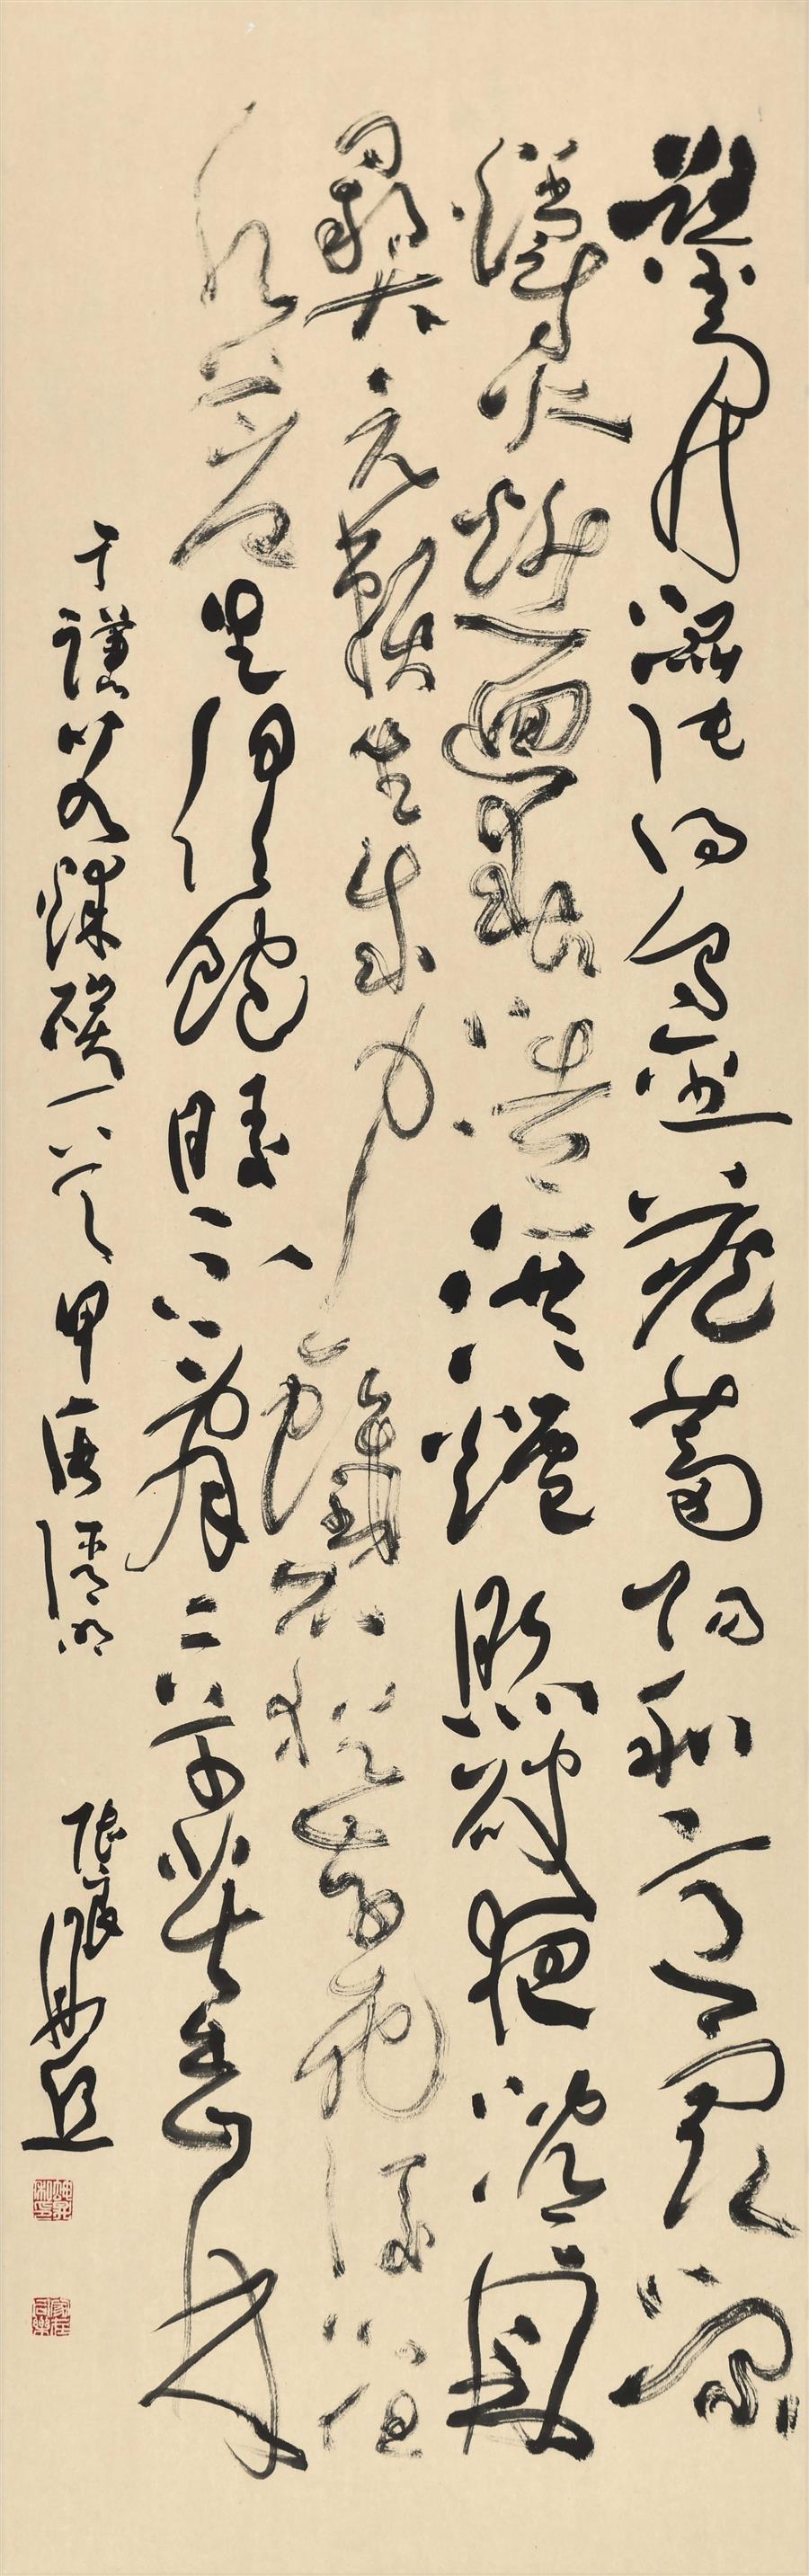 鑿開混沌得烏金藏蓄陽和意最深
爝火燃迴春浩浩洪爐照破夜沉沉鼎
彝元賴生成力鐵石猶存死後心但
願蒼生俱飽暖不辭辛苦出山林
于謙詠煤炭一首甲辰清明